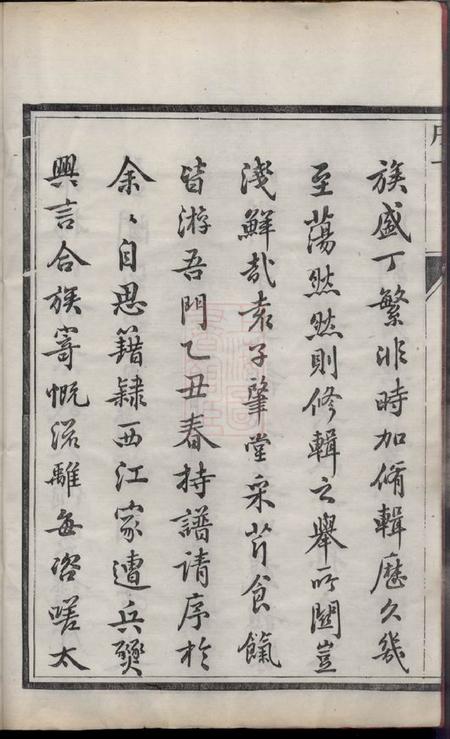 族盛丁繁非時加脩輯歷久幾
至蕩然然則修輯之舉所關豈
淺鮮哉袁子肇堂采芹食餼
皆游吾門乙丑春持譜請序於
余〻自思籍隸西江家遭兵燹
興言合族寄慨流離每咨嗟太